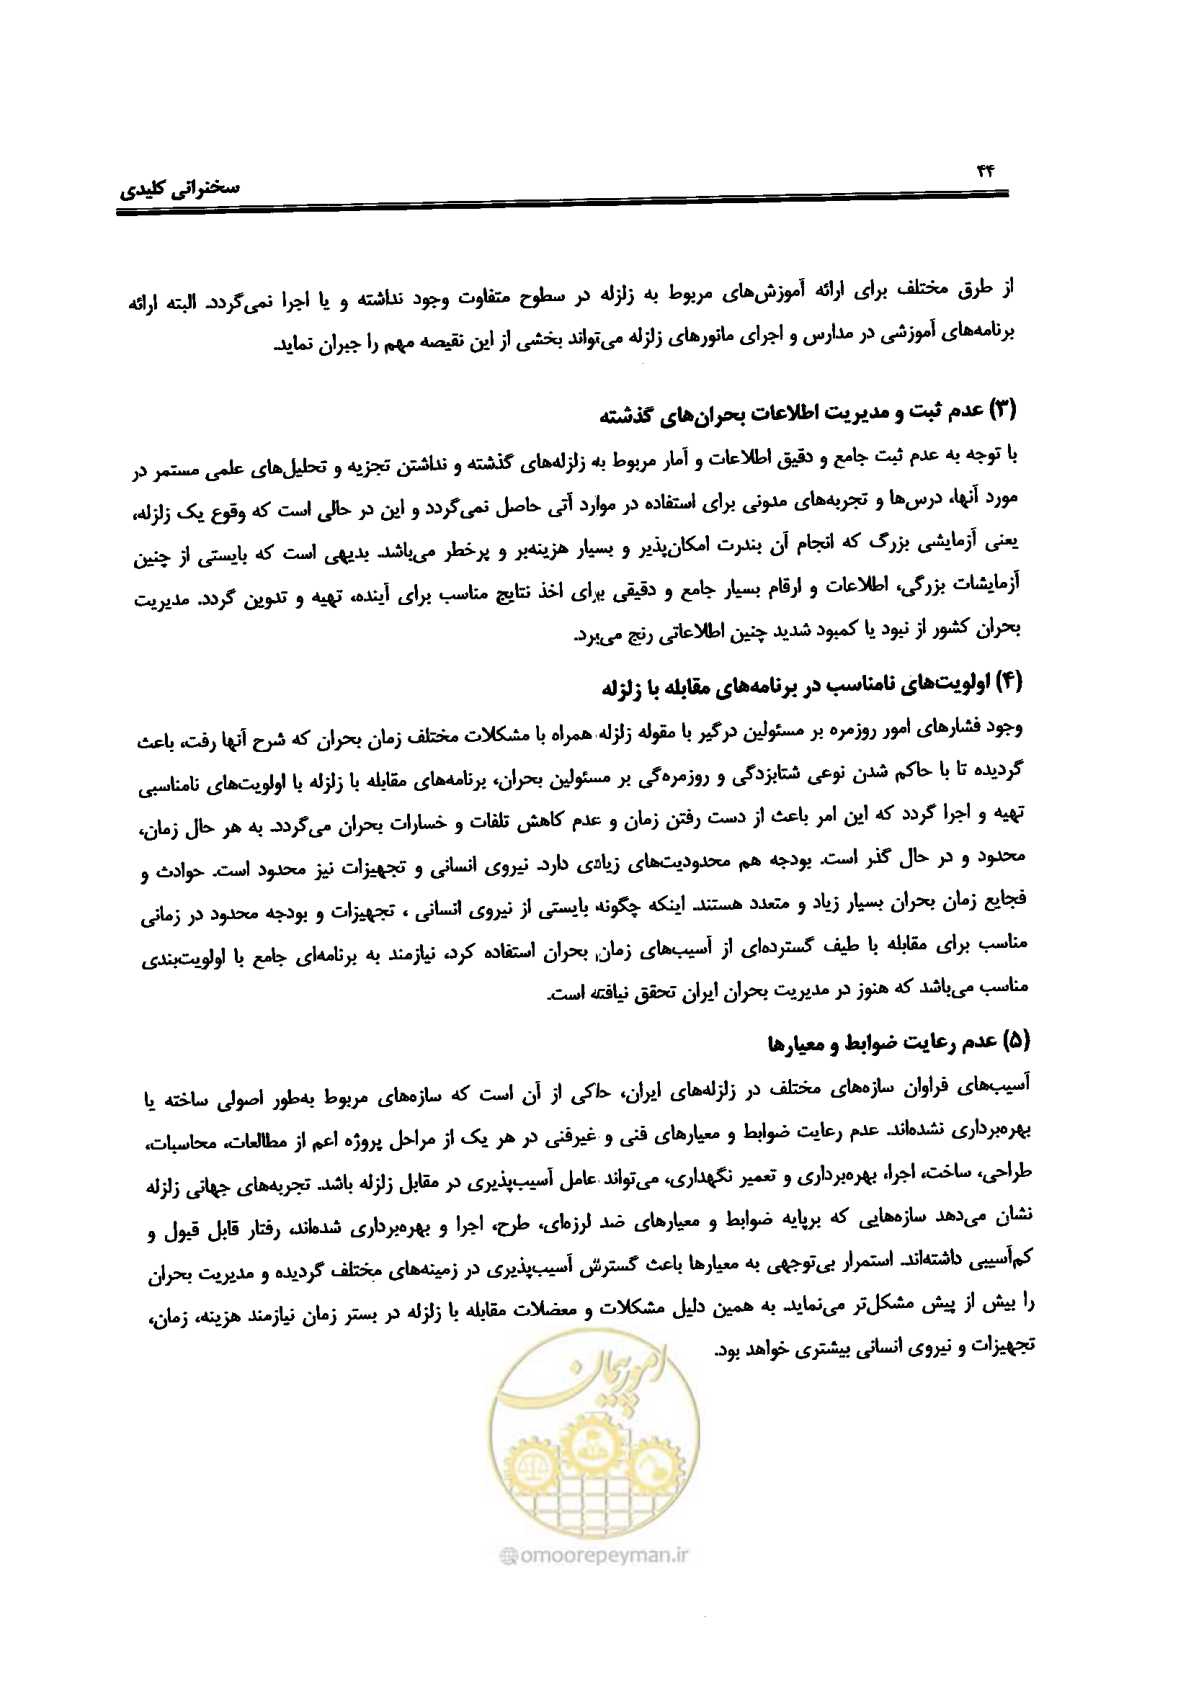 ۴۴
سخنرانی کلیدی
از طرق مختلف برای ارائه آموزش‌های مربوط به زلزله در سطوح متفاوت وجود نداشته و یا اجرا نمی‌گردد. البته ارائه
برنامه‌های آموزشی در مدارس و اجرای مانورهای زلزله می‌تواند بخشی از این نقیصه مهم را جبران نماید.
(۳) عدم ثبت و مدیریت اطلاعات بحران‌های گذشته
با توجه به عدم ثبت جامع و دقیق اطلاعات و آمار مربوط به زلزله‌های گذشته و نداشتن تجزیه و تحلیل‌های علمی مستمر در
مورد آنها، درس‌ها و تجربه‌های مدونی برای استفاده در موارد آتی حاصل نمی‌گردد و این در حالی است که وقوع یک زلزله،
یعنی آزمایشی بزرگ که انجام آن بندرت امکان‌پذیر و بسیار هزینه‌بر و پرخطر می‌باشد. بدیهی است که بایستی از چنین
آزمایشات بزرگی، اطلاعات و ارقام بسیار جامع و دقیقی برای اخذ نتایج مناسب برای آینده، تهیه و تدوین گردد. مدیریت
بحران کشور از نبود یا کمبود شدید چنین اطلاعاتی رنج می‌برد.
(۴) اولویت‌های نامناسب در برنامه‌های مقابله با زلزله
وجود فشارهای امور روزمره بر مسئولین درگیر با مقوله زلزله همراه با مشکلات مختلف زمان بحران که شرح آنها رفت، باعث
گردیده تا با حاکم شدن نوعی شتابزدگی و روزمره‌گی بر مسئولین بحران، برنامه‌های مقابله با زلزله با اولویت‌های نامناسبی
تهیه و اجرا گردد که این امر باعث از دست رفتن زمان و عدم کاهش تلفات و خسارات بحران می‌گردد. به هر حال زمان،
محدود و در حال گذر است. بودجه هم محدودیت‌های زیادی دارد. نیروی انسانی و تجهیزات نیز محدود است. حوادث و
فجایع زمان بحران بسیار زیاد و متعدد هستند. اینکه چگونه بایستی از نیروی انسانی ، تجهیزات و بودجه محدود در زمانی
مناسب برای مقابله با طیف گسترده‌ای از آسیب‌های زمان بحران استفاده کرد، نیازمند به برنامه‌ای جامع با اولویت‌بندی
مناسب می‌باشد که هنوز در مدیریت بحران ایران تحقق نیافته است.
(۵) عدم رعایت ضوابط و معیارها
آسیب‌های فراوان سازه‌های مختلف در زلزله‌های ایران، حاکی از آن است که سازه‌های مربوط به‌طور اصولی ساخته یا
بهره‌برداری نشده‌اند. عدم رعایت ضوابط و معیارهای فنی و غیرفنی در هر یک از مراحل پروژه اعم از مطالعات، محاسبات،
طراحی، ساخت، اجرا، بهره‌برداری و تعمیر نگهداری، می‌تواند عامل آسیب‌پذیری در مقابل زلزله باشد. تجربه‌های جهانی زلزله
نشان می‌دهد سازه‌هایی که برپایه ضوابط و معیارهای ضد لرزه‌ای، طرح، اجرا و بهره‌برداری شده‌اند، رفتار قابل قبول و
کم‌آسیبی داشته‌اند. استمرار بی‌توجهی به معیارها باعث گسترش آسیب‌پذیری در زمینه‌های مختلف گردیده و مدیریت بحران
را بیش از پیش مشکل‌تر می‌نماید. به همین دلیل مشکلات و معضلات مقابله با زلزله در بستر زمان نیازمند هزینه، زمان،
تجهیزات و نیروی انسانی بیشتری خواهد بود.
امور پیمان
omoorepeyman.ir